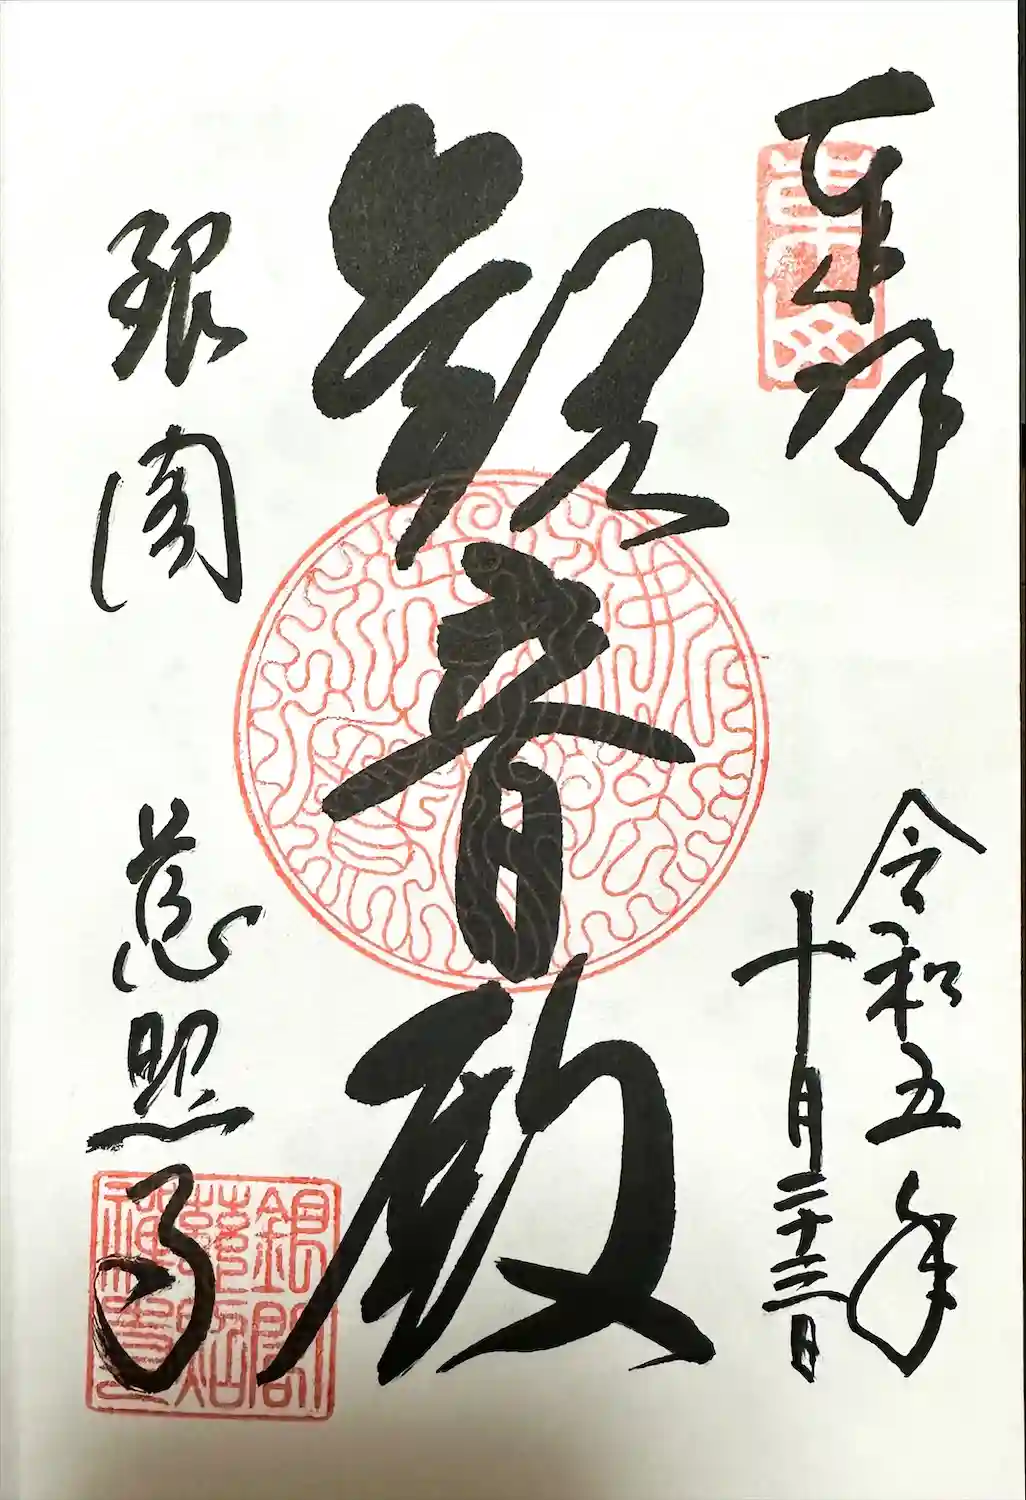 奉拝
令和五年
十月二十三日
觀音殿
銀閣
慈照寺
銀閣
慈照
禅寺